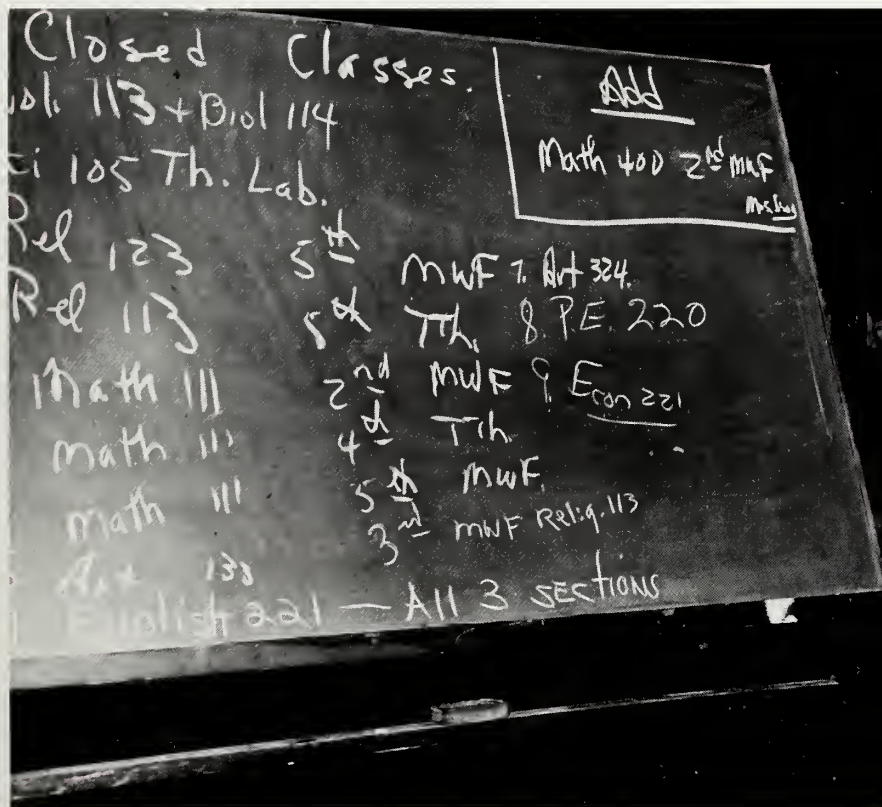 Closed Classes.
113 + Biol 114
105 Th. Lab.
Rel 123 5th MWF 7. Art 324.
Rel 113 5th Tth, 8. P.E. 220
Math 111 2nd MWF 9. Econ 221
math 111 4th Tth
math 111 5th MWF,
Art 133 3rd MWF Relig. 113
English 221 — All 3 SECTIONS
Add
Math 400 2nd MWF